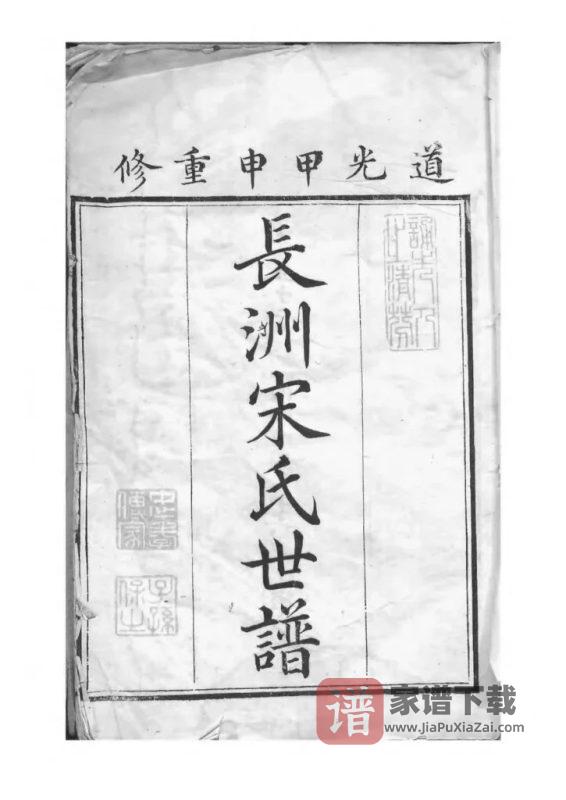 道光甲申重修
長洲宋氏世譜
誦先人之清芬
忠孝傳家
子孫保之
谱 家谱下载
www.JiaPuXiaZai.com